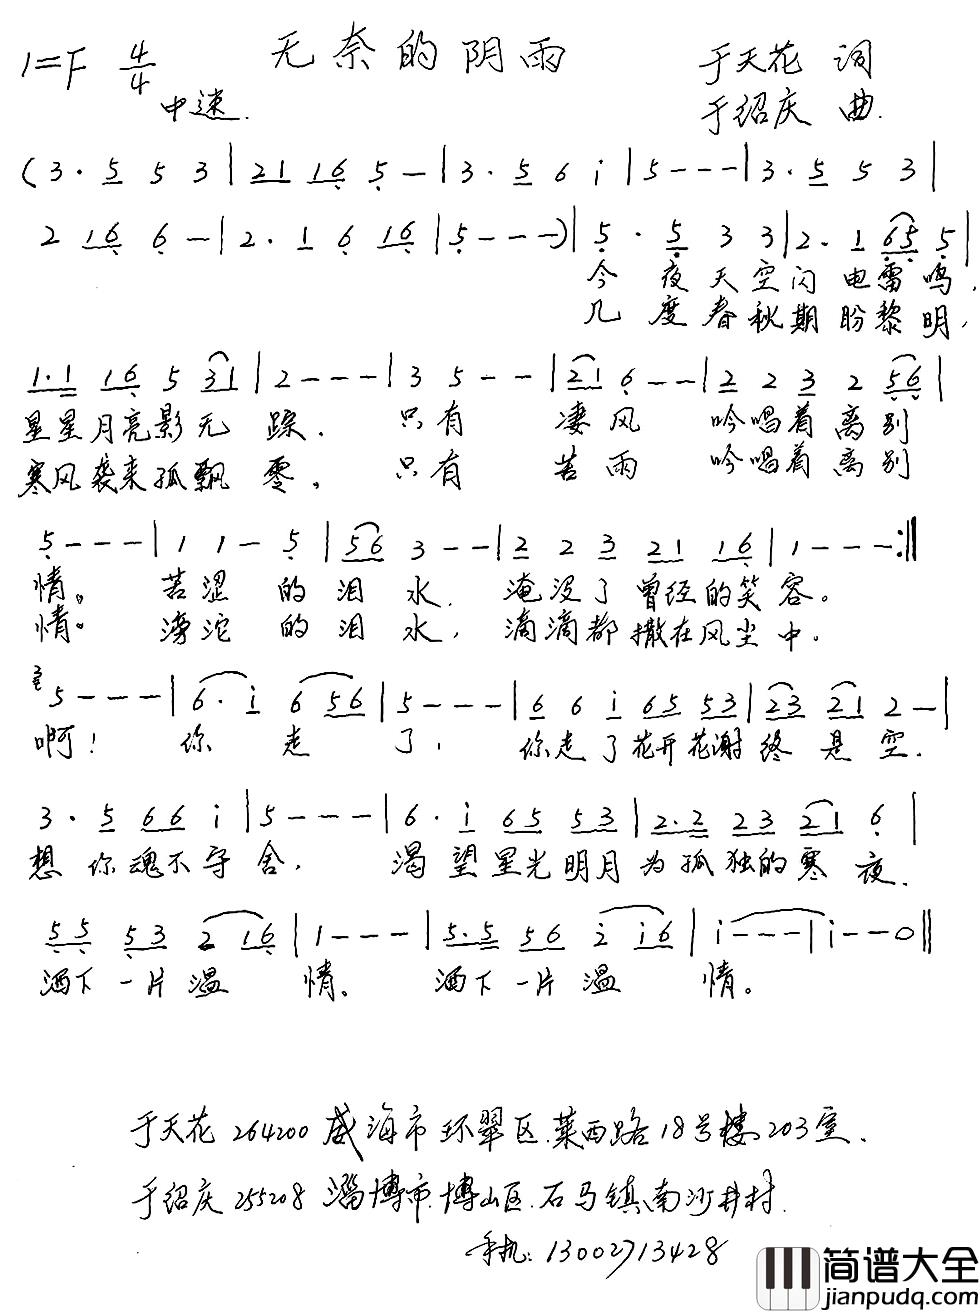 无奈的阴雨
1=F 4/4
中速.
于天花 词
于绍庆 曲.
(3· 5 5 3 | 21 16 5 — | 3· 5 6 i | 5 - - - | 3· 5 5 3 |
2 16 6 — | 2· 1 6 16 | 5 - - -) | 5· 5 3 3 | 2· 1 65 5 |
今夜天空闪电雷鸣,
几度春秋期盼黎明,
1·1 16 5 31 | 2 - - - | 3 5 - - | 21 6 - - | 2 2 3 2 56 |
星星月亮影无踪. 只有凄风吟唱着离别
寒风袭来孤飘零, 只有苦雨吟唱着离别
5 - - - | 1 1 - 5 | 56 3 - - | 2 2 3 21 16 | 1 - - - :||
情。苦涩的泪水, 淹没了曾经的笑容。
情。滂沱的泪水, 滴滴都撒在风尘中.
3 5 - - - | 6· i 6 56 | 5 - - - | 6 6 i 65 53 | 23 21 2 — |
啊! 你走了, 你走了花开花谢终是空.
3· 5 66 i | 5 - - - | 6· i 65 53 | 2·2 23 21 6 |
想你魂不守舍, 渴望星光明月为孤独的寒夜.
55 53 2 16 | 1 - - - | 5·5 56 2 i6 | i - - - | i - - 0 ||
洒下一片温情。洒下一片温情。
于天花 264200 威海市环翠区.莱西路18号楼203室.
于绍庆 255208 淄博市.博山区.石马镇.南沙井村.
手机: 13002713428
简谱大全
jianpudq.com